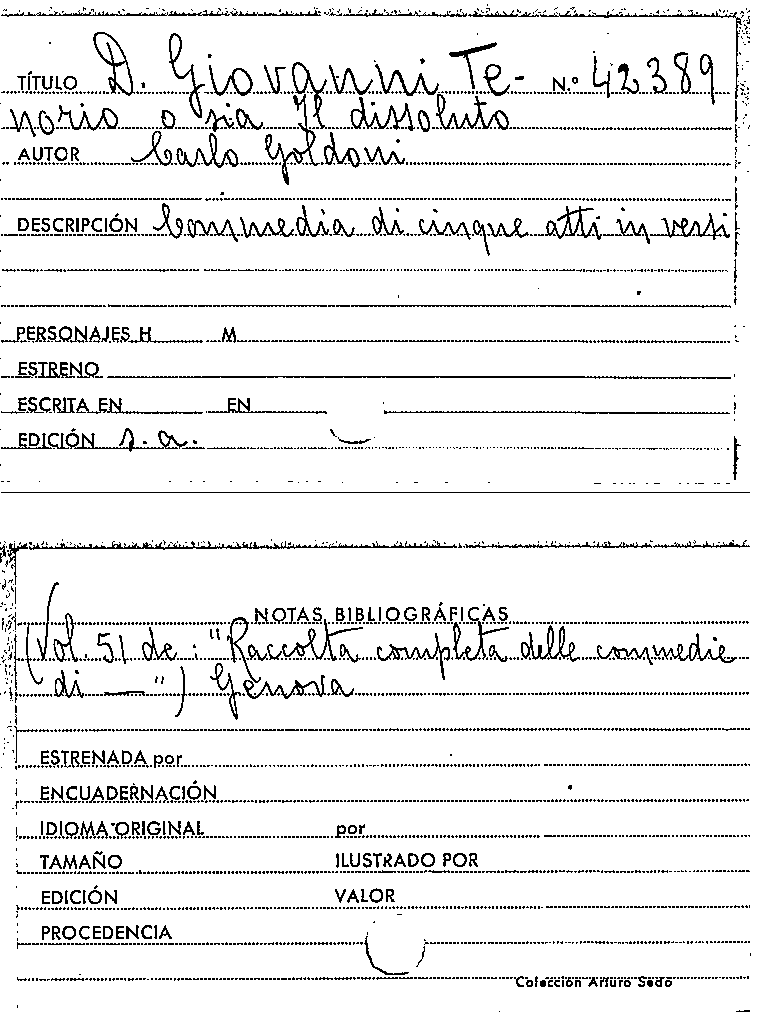 TÍTULO D. Giovanni Te- N.º 42389
norio o sia Il dissoluto
AUTOR Carlo Goldoni
DESCRIPCIÓN Commedia di cinque atti in versi
PERSONAJES H M
ESTRENO
ESCRITA EN EN
EDICIÓN s.a.
NOTAS BIBLIOGRÁFICAS
(Vol. 51 de: "Raccolta completa delle commedie
di —") Genova
ESTRENADA por
ENCUADERNACIÓN
IDIOMA ORIGINAL por
TAMAÑO ILUSTRADO POR
EDICIÓN VALOR
PROCEDENCIA
Colección Arturo Sedó